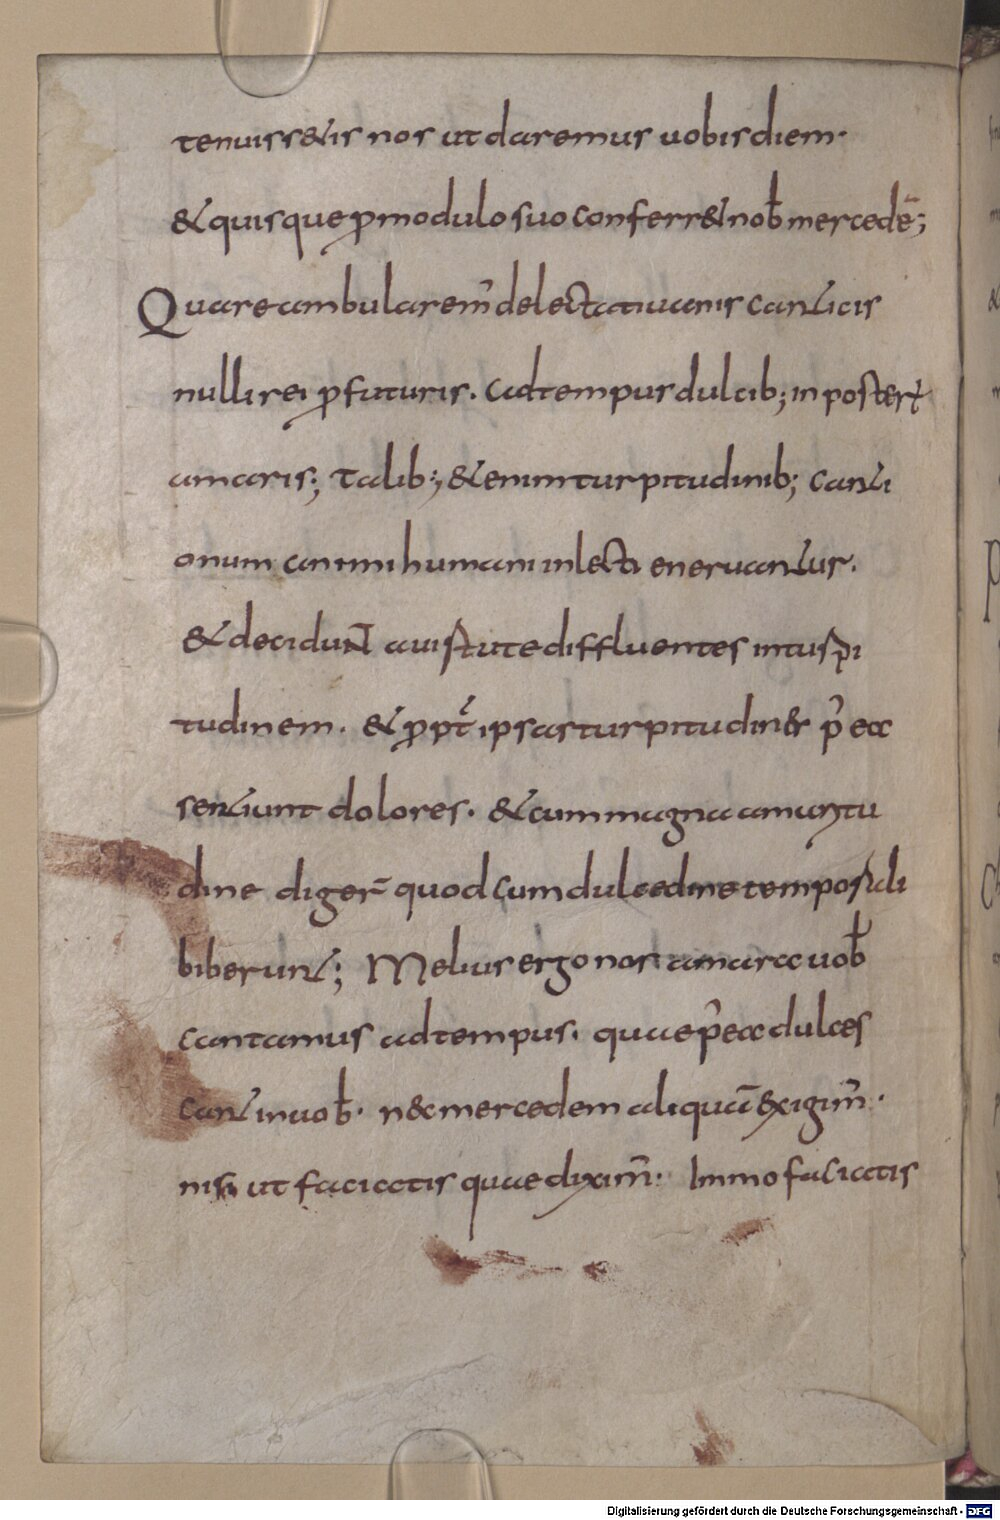 tenuissetis nos ut daremus uobis diem·
& quisque ꝓ modulo suo conferr& nob̄ mercedē;
Quare ambularem̄ delectati uanis canticis
nulli rei ꝓfuturis. ad tempus dulcib; in posterū
amaris; Talib; &enim turpitudinib; canti
onum animi humani inlecti eneruantur.
& decidunt a uirtute diffluentes in turpi
tudinem. & ꝓpt̄ ipsas turpitudines p̄ea
sentiunt dolores. & cum magna amaritu
dine diger̄ quod cum dulcedine temporali
biberunt; Melius ergo nos amara uob̄
cantamus ad tempus. quae p̄ea dulces
cant in uob̄. nec mercedem aliquā exigim̄.
nisi ut faciatis quae diximꝰ. Immo faciatis
Digitalisierung gefördert durch die Deutsche Forschungsgemeinschaft - DFG